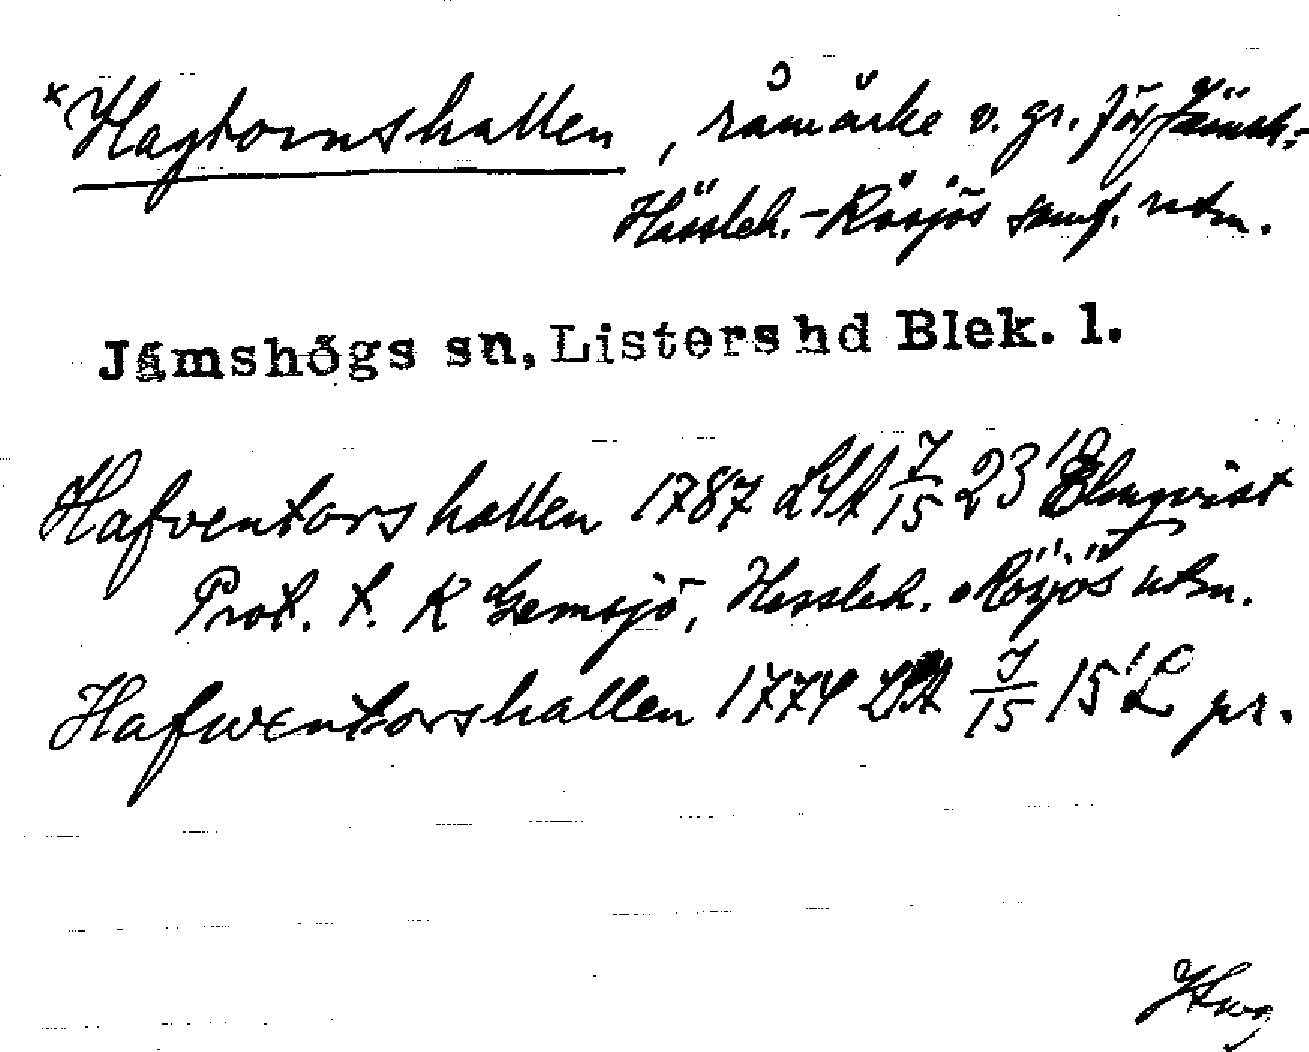 *Hagtornshallen, råmärke v. gr. för Jämsh.-
Hässleh.-Råsjös samf. utm.
Jämshögs sn, Listers hd Blek. l.
Hafventorshallen 1787 LSA 7/15 23 Elmqvist
Prot. t. K Gemsjö, Hessleh. Råsjös utm.
Hafwentorshallen 1774 LSA 7/15 15 L pr.